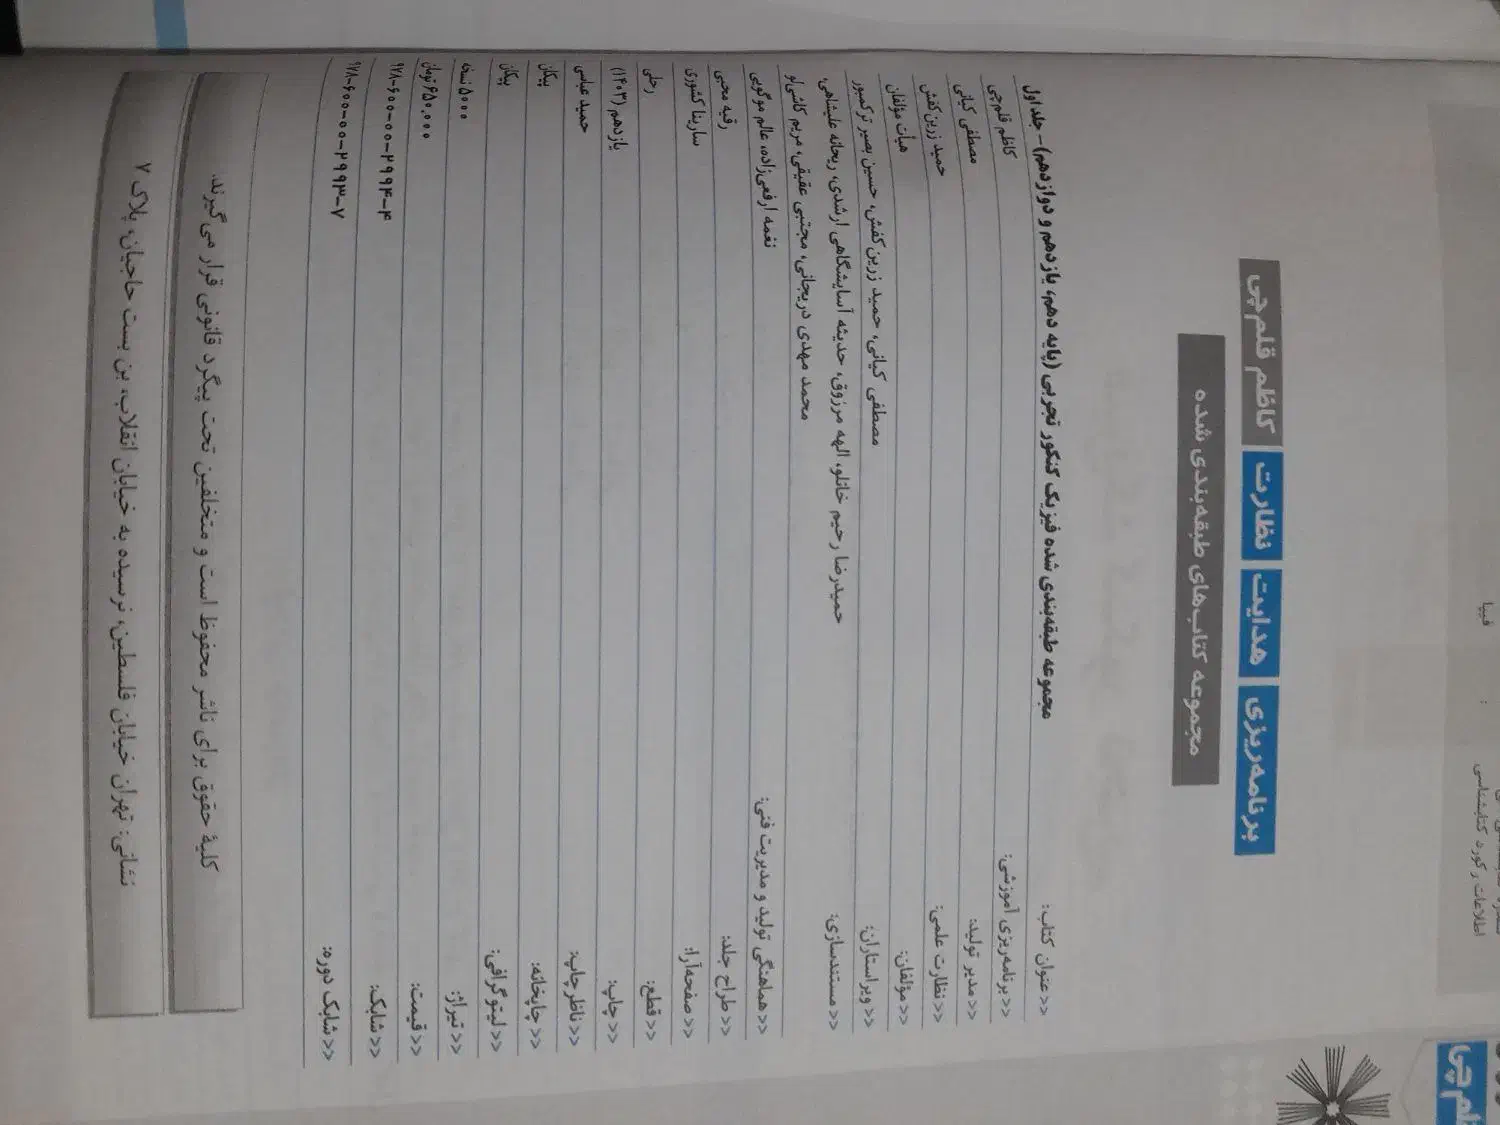 فیپا
:
اطلاعات رکورد کتابشناسی
لم‌چی
برنامه‌ریزی هدایت نظارت کاظم قلم‌چی
مجموعه کتاب‌های طبقه‌بندی شده
>> عنوان کتاب: مجموعه طبقه‌بندی شده فیزیک کنکور تجربی (پایه دهم، یازدهم و دوازدهم) - جلد اول
>> برنامه‌ریزی آموزشی: کاظم قلم‌چی
>> مدیر تولید: مصطفی کیانی
>> نظارت علمی: حمید زرین‌کفش
>> مؤلفان: هیأت مؤلفان
>> ویراستاران: مصطفی کیانی، حمید زرین‌کفش، حسین بصیر ترکمبور
>> مستندسازی: حمیدرضا رحیم خانلو، الهه مرزوق، حدیثه آسایشگاهی ارشدی، ریحانه علیشاهی،
محمد مهدی دریجانی، مجتبی عقیقی، مریم کاشی‌لو
>> هماهنگی تولید و مدیریت فنی: نغمه ارفعی‌زاده، عالم موگویی
>> طراح جلد: رقیه محبی
>> صفحه‌آرا: سارینا کشوری
>> قطع: رحلی
>> چاپ: یازدهم (۱۴۰۳)
>> ناظر چاپ: حمید عباسی
>> چاپخانه: پیکان
>> لیتوگرافی: پیکان
>> تیراژ: ۵۰۰۰ نسخه
>> قیمت: ۶۵۰,۰۰۰ تومان
>> شابک: ۹۷۸-۶۰۰-۰۰-۲۹۹۴-۴
>> شابک دوره: ۹۷۸-۶۰۰-۰۰-۲۹۹۳-۷
کلیهٔ حقوق برای ناشر محفوظ است و متخلفین تحت پیگرد قانونی قرار می‌گیرند.
نشانی: تهران خیابان فلسطین، نرسیده به خیابان انقلاب، بن بست حاجیان، پلاک ۷